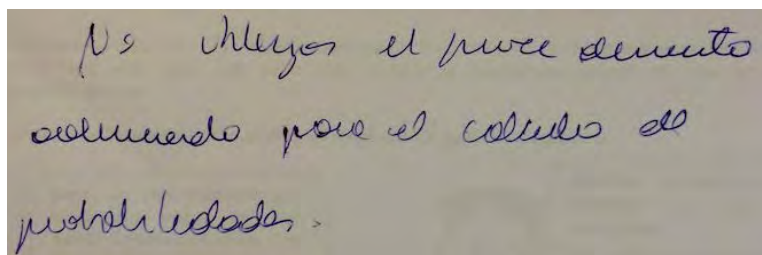 No utilizas el procedimiento
adecuado para el calculo de
probabilidades.